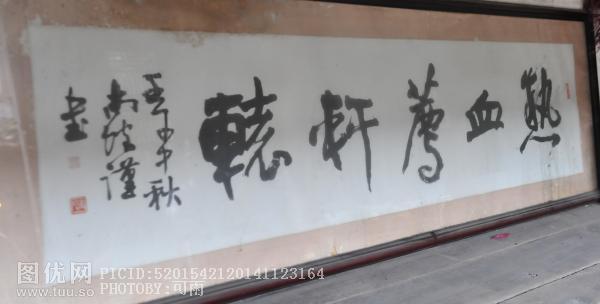 熱血薦軒轅
壬申中秋
尚坡謹
書
图优网
www.tuu.so
PICID:5201542120141123164
PHOTOBY:可雨